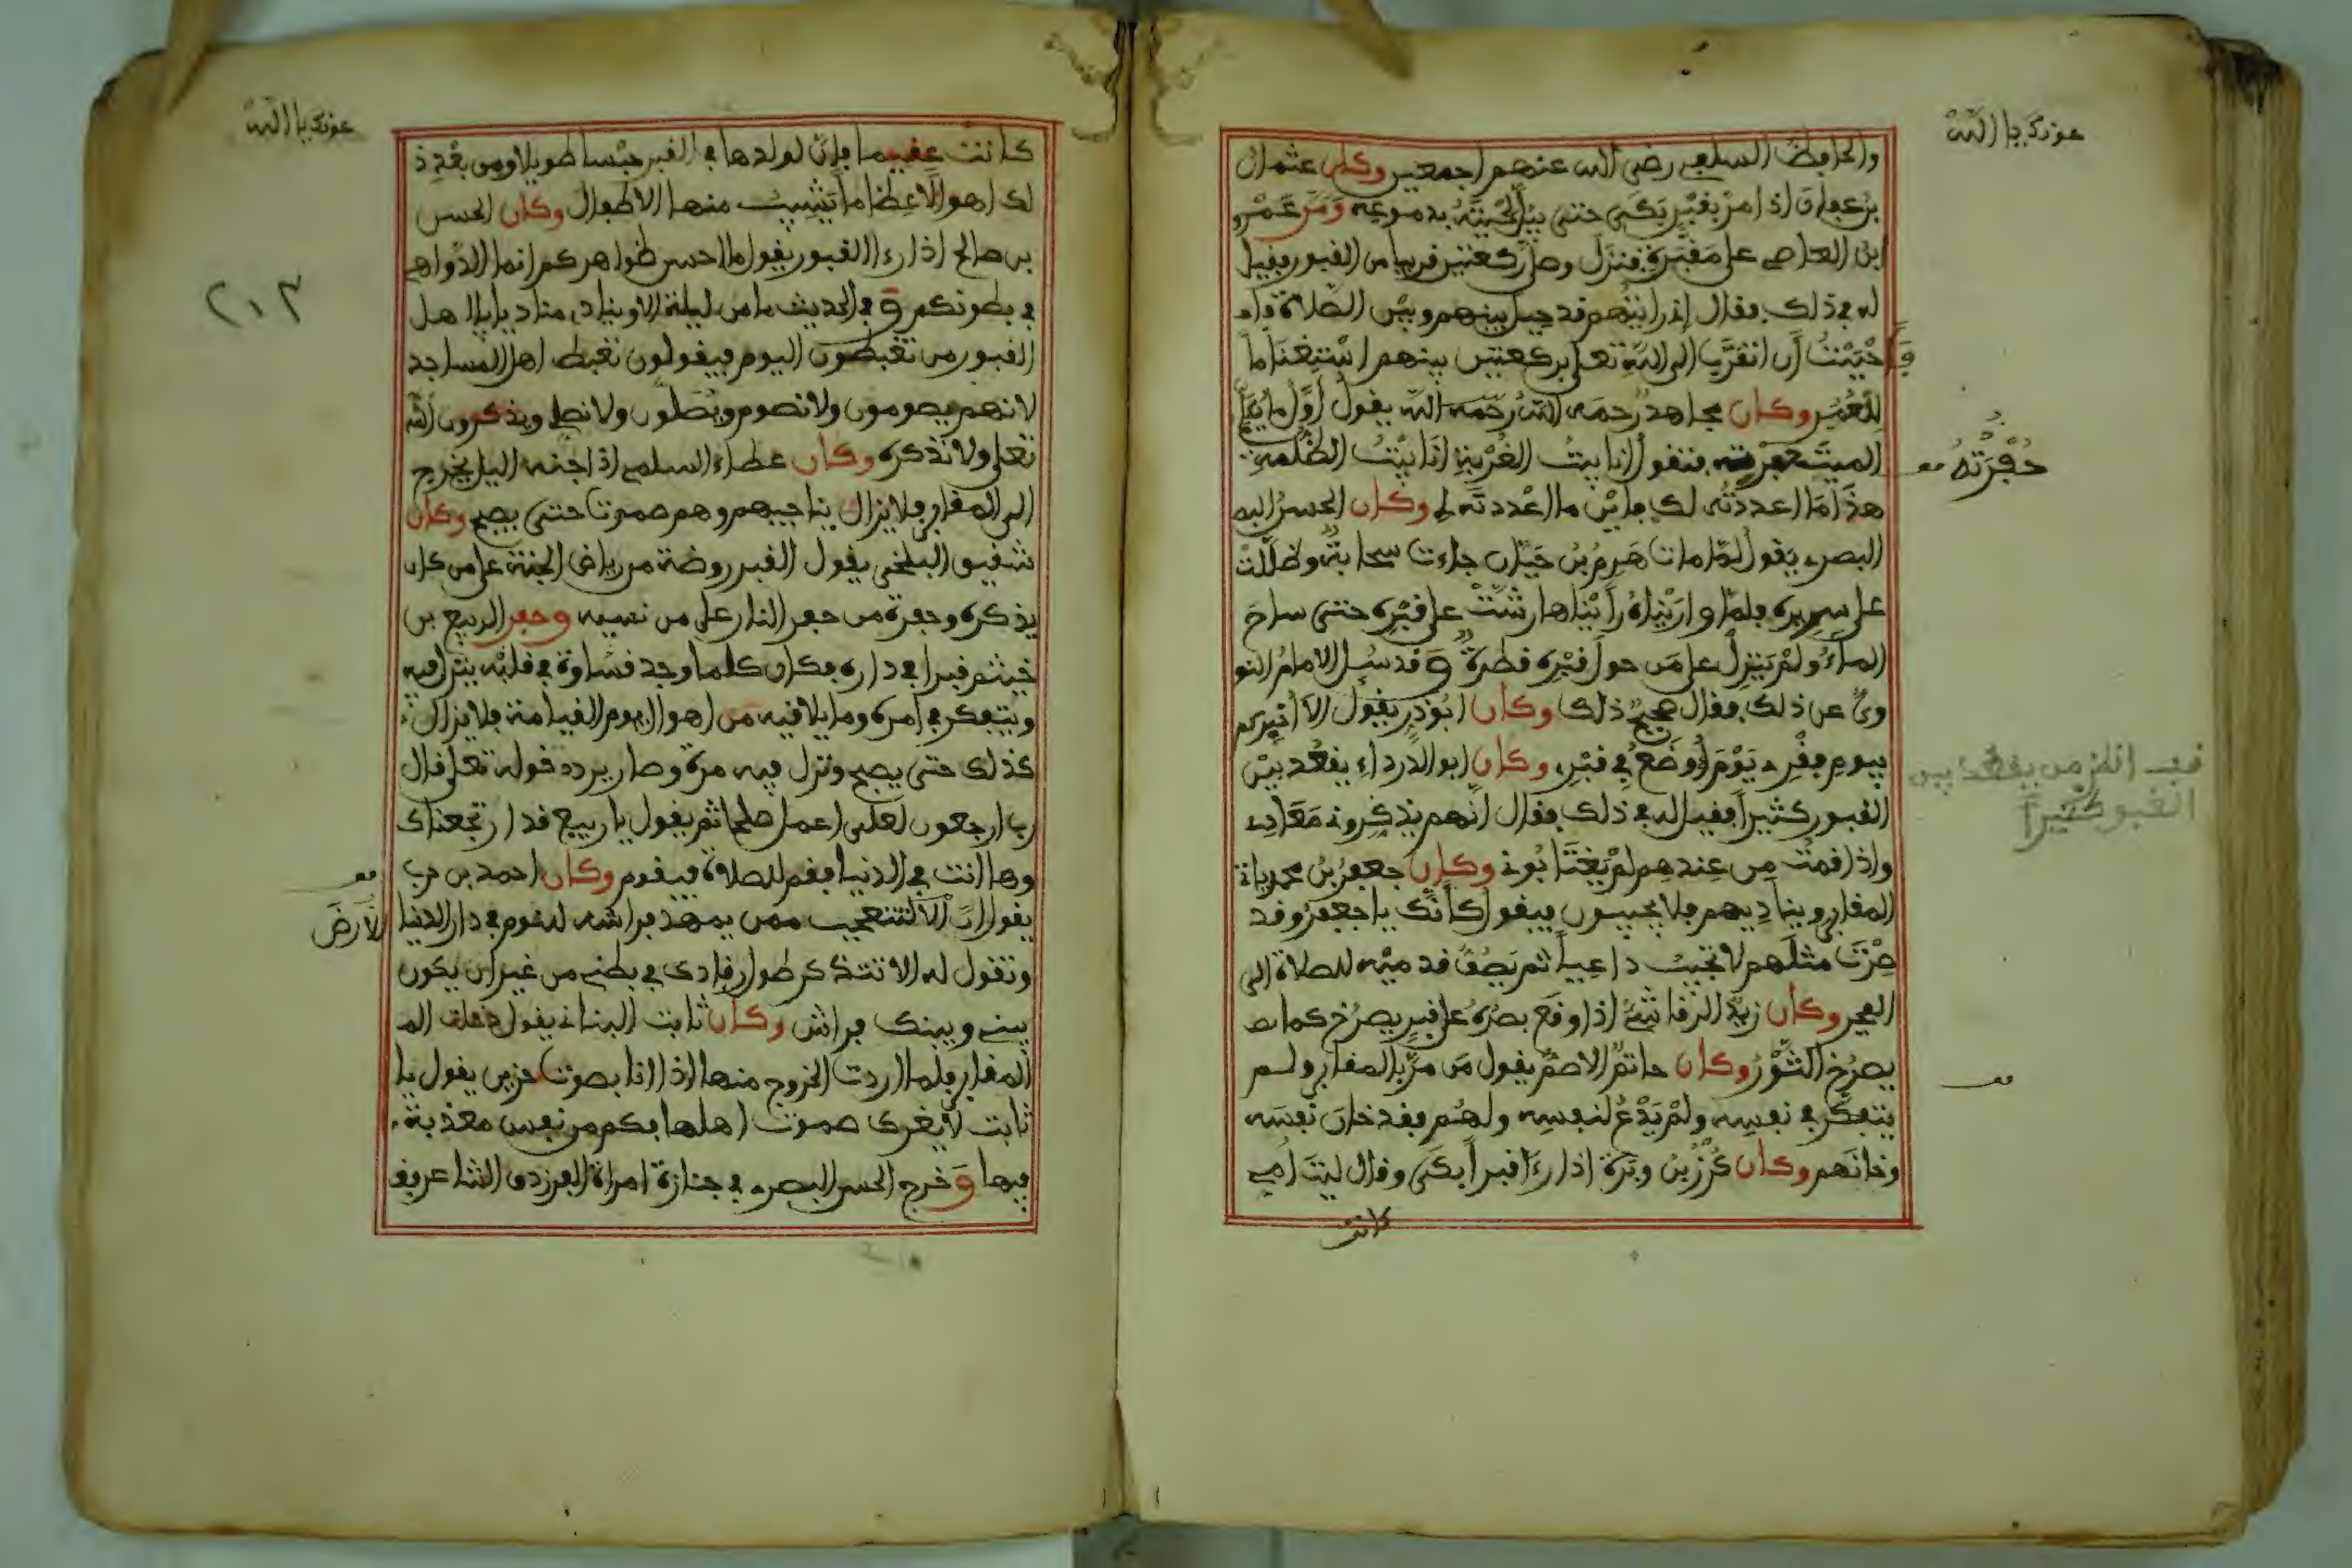 عونك يا الله
والحافظ السلفي رضي الله عنهم اجمعين وكان عثمان
بن عفان اذا مر بقبر بكى حتى يبل لحيته بدموعه ومر عمرو
ابن العاصي على مقبرة فنزل وصلى ركعتين قريبا من القبور فقيل
له في ذلك فقال اني رايتهم قد حيل بينهم وبين الصلاة
فاحببت أن اتقرب الى الله تعلى بركعتين بينهم
وكان مجاهد رحمه الله رحمه الله يقول أول ما
الميت حفرته فتقول انا بيت الغربة انا بيت الظلمة
حفرته
هذا ما اعددته لك فاين ما اعددته لي وكان الحسن البص
البصري يقول لما مات هرم بن حيان جاءت سحابة وظللت
على سريره فلما واريناه رأيناها رشت على قبره حتى ساح
الماء ولم ينزل على من حول قبره قطرة وقد سئل الامام النو
وي عن ذلك فقال صحيح ذلك وكان ابو ذر يقول الا أخبركم
بيوم فقري يوم أوضع في قبري وكان ابو الدرداء يقعد بين
القبور كثيرا فقيل له في ذلك فقال انهم يذكروني معادي
قف انظر من يقعد بين
القبور كثيرا
واذا قمت من عندهم لم يغتابوني وكان جعفر بن محمد ياتي
المقابر ويناديهم فلا يجيبون فيقول كأنك يا جعفر وقد
صرت مثلهم لا تجيب داعيا ثم يصف قدميه للصلاة الى
الفجر وكان يزيد الرقاشي اذا وقع بصره على قبر يصرخ كما
يصرخ الثور وكان حاتم الاصم يقول من مر بالمقابر ولم
يتفكر في نفسه ولم يدع لنفسه ولهم فقد خان نفسه
وخانهم وكان كرز بن وبرة اذا رءا قبرا بكى وقال ليت امي
كانت
عونك يا الله
كانت عقيما فإن لولدها في القبر حبسا طويلا ومن بعد ذ
لك اهوالا عظاما تشيب منها الاطفال وكان الحسن
بن صالح اذا رءا القبور يقول ما احسن ظواهركم انما الدواهي
في بطونكم وفي الحديث ما من ليلة الا وينادي مناد يا اهل
٢١٣
القبور من تغبطون اليوم فيقولون نغبط اهل المساجد
لانهم يصومون ولا نصوم ويصلون ولا نصلي ويذكرون الله
تعلى ولا نذكره وكان عطاء السلمي اذا جنه اليل يخرج
الى المقابر فلا يزال يناجيهم وهم صموتا حتى يصبح وكان
شقيق البلخي يقول القبر روضة من رياض الجنة على من كان
يذكره وحفرة من حفر النار على من نسيه وحفر الربيع بن
خيثم قبرا في داره فكان كلما وجد قساوة في قلبه ينزل فيه
ويتفكر في امره وما يلاقيه من اهوال يوم القيامة فلا يزال
كذلك حتى يصبح ونزل فيه مرة وصار يردد قوله تعلى قال
رب ارجعون لعلي اعمل صلحا ثم يقول يا ربيع قد ارجعناك
وها انت في الدنيا فقم للصلاة فيقوم وكان احمد بن حرب
يقول ان الارض لتتعجب ممن يمهد فراشه للنوم في دار الدنيا
الأرض
وتقول له الا تتذكر طول رقادك في بطني من غير ان يكون
بيني وبينك فراش وكان ثابت البناني يقول دخلت الم
المقابر فلما اردت الخروج منها اذا انا بصوت حزين يقول يا
ثابت لا يغرك صموت اهلها فكم من نفس معذبة
فيها وخرج الحسن البصري في جنازة امراة الفرزدق الشاعر